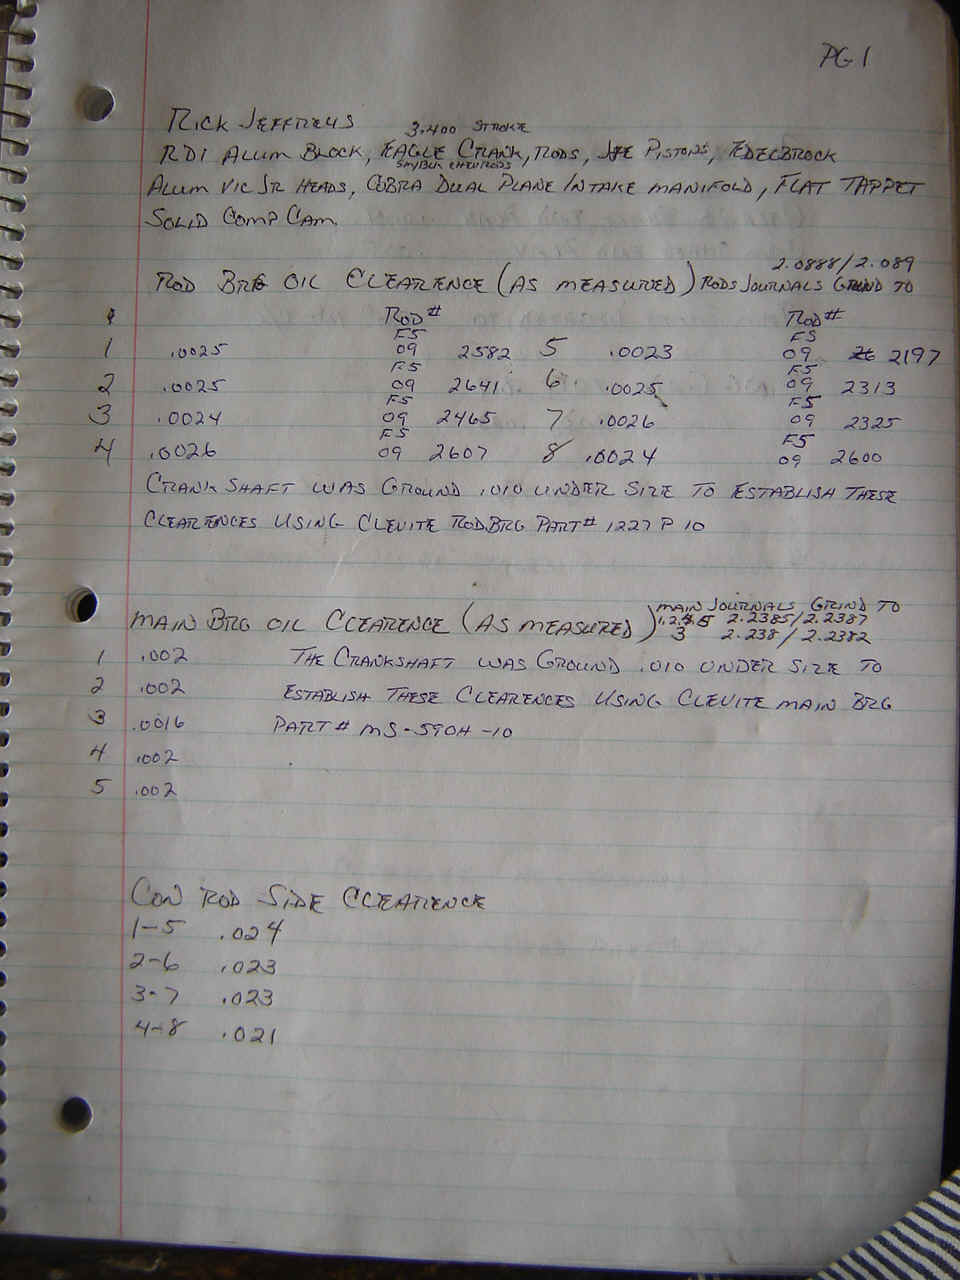 PG 1
RICK JEFFREYS
3.400 STROKE
RDI ALUM BLOCK, EAGLE CRANK, RODS, JE PISTONS, EDELBROCK
SM/BLK CHEV RODS
ALUM VIC JR HEADS, COBRA DUAL PLANE INTAKE MANIFOLD, FLAT TAPPET
SOLID COMP CAM.
2.0888/2.089
ROD BRG OIL CLEARENCE (AS MEASURED) RODS JOURNALS GRIND TO
ROD # ROD #
F5 F5
1 .0025 09 2582 5 .0023 09 2197
F5 F5
2 .0025 09 2641 6 .0025 09 2313
F5 F5
3 .0024 09 2465 7 .0026 09 2325
F5 F5
4 .0026 09 2607 8 .0024 09 2600
CRANKSHAFT WAS GROUND .010 UNDER SIZE TO ESTABLISH THESE
CLEARENCES USING CLEVITE ROD BRG PART# 1227 P 10
MAIN JOURNALS GRIND TO
MAIN BRG OIL CLEARENCE (AS MEASURED) 1,2,4,5 2.2385/2.2387
3 2.238/2.2382
1 .002 THE CRANKSHAFT WAS GROUND .010 UNDER SIZE TO
2 .002 ESTABLISH THESE CLEARENCES USING CLEVITE MAIN BRG
3 .0016 PART# MS-590H-10
4 .002
5 .002
CON ROD SIDE CLEARENCE
1-5 .024
2-6 .023
3-7 .023
4-8 .021